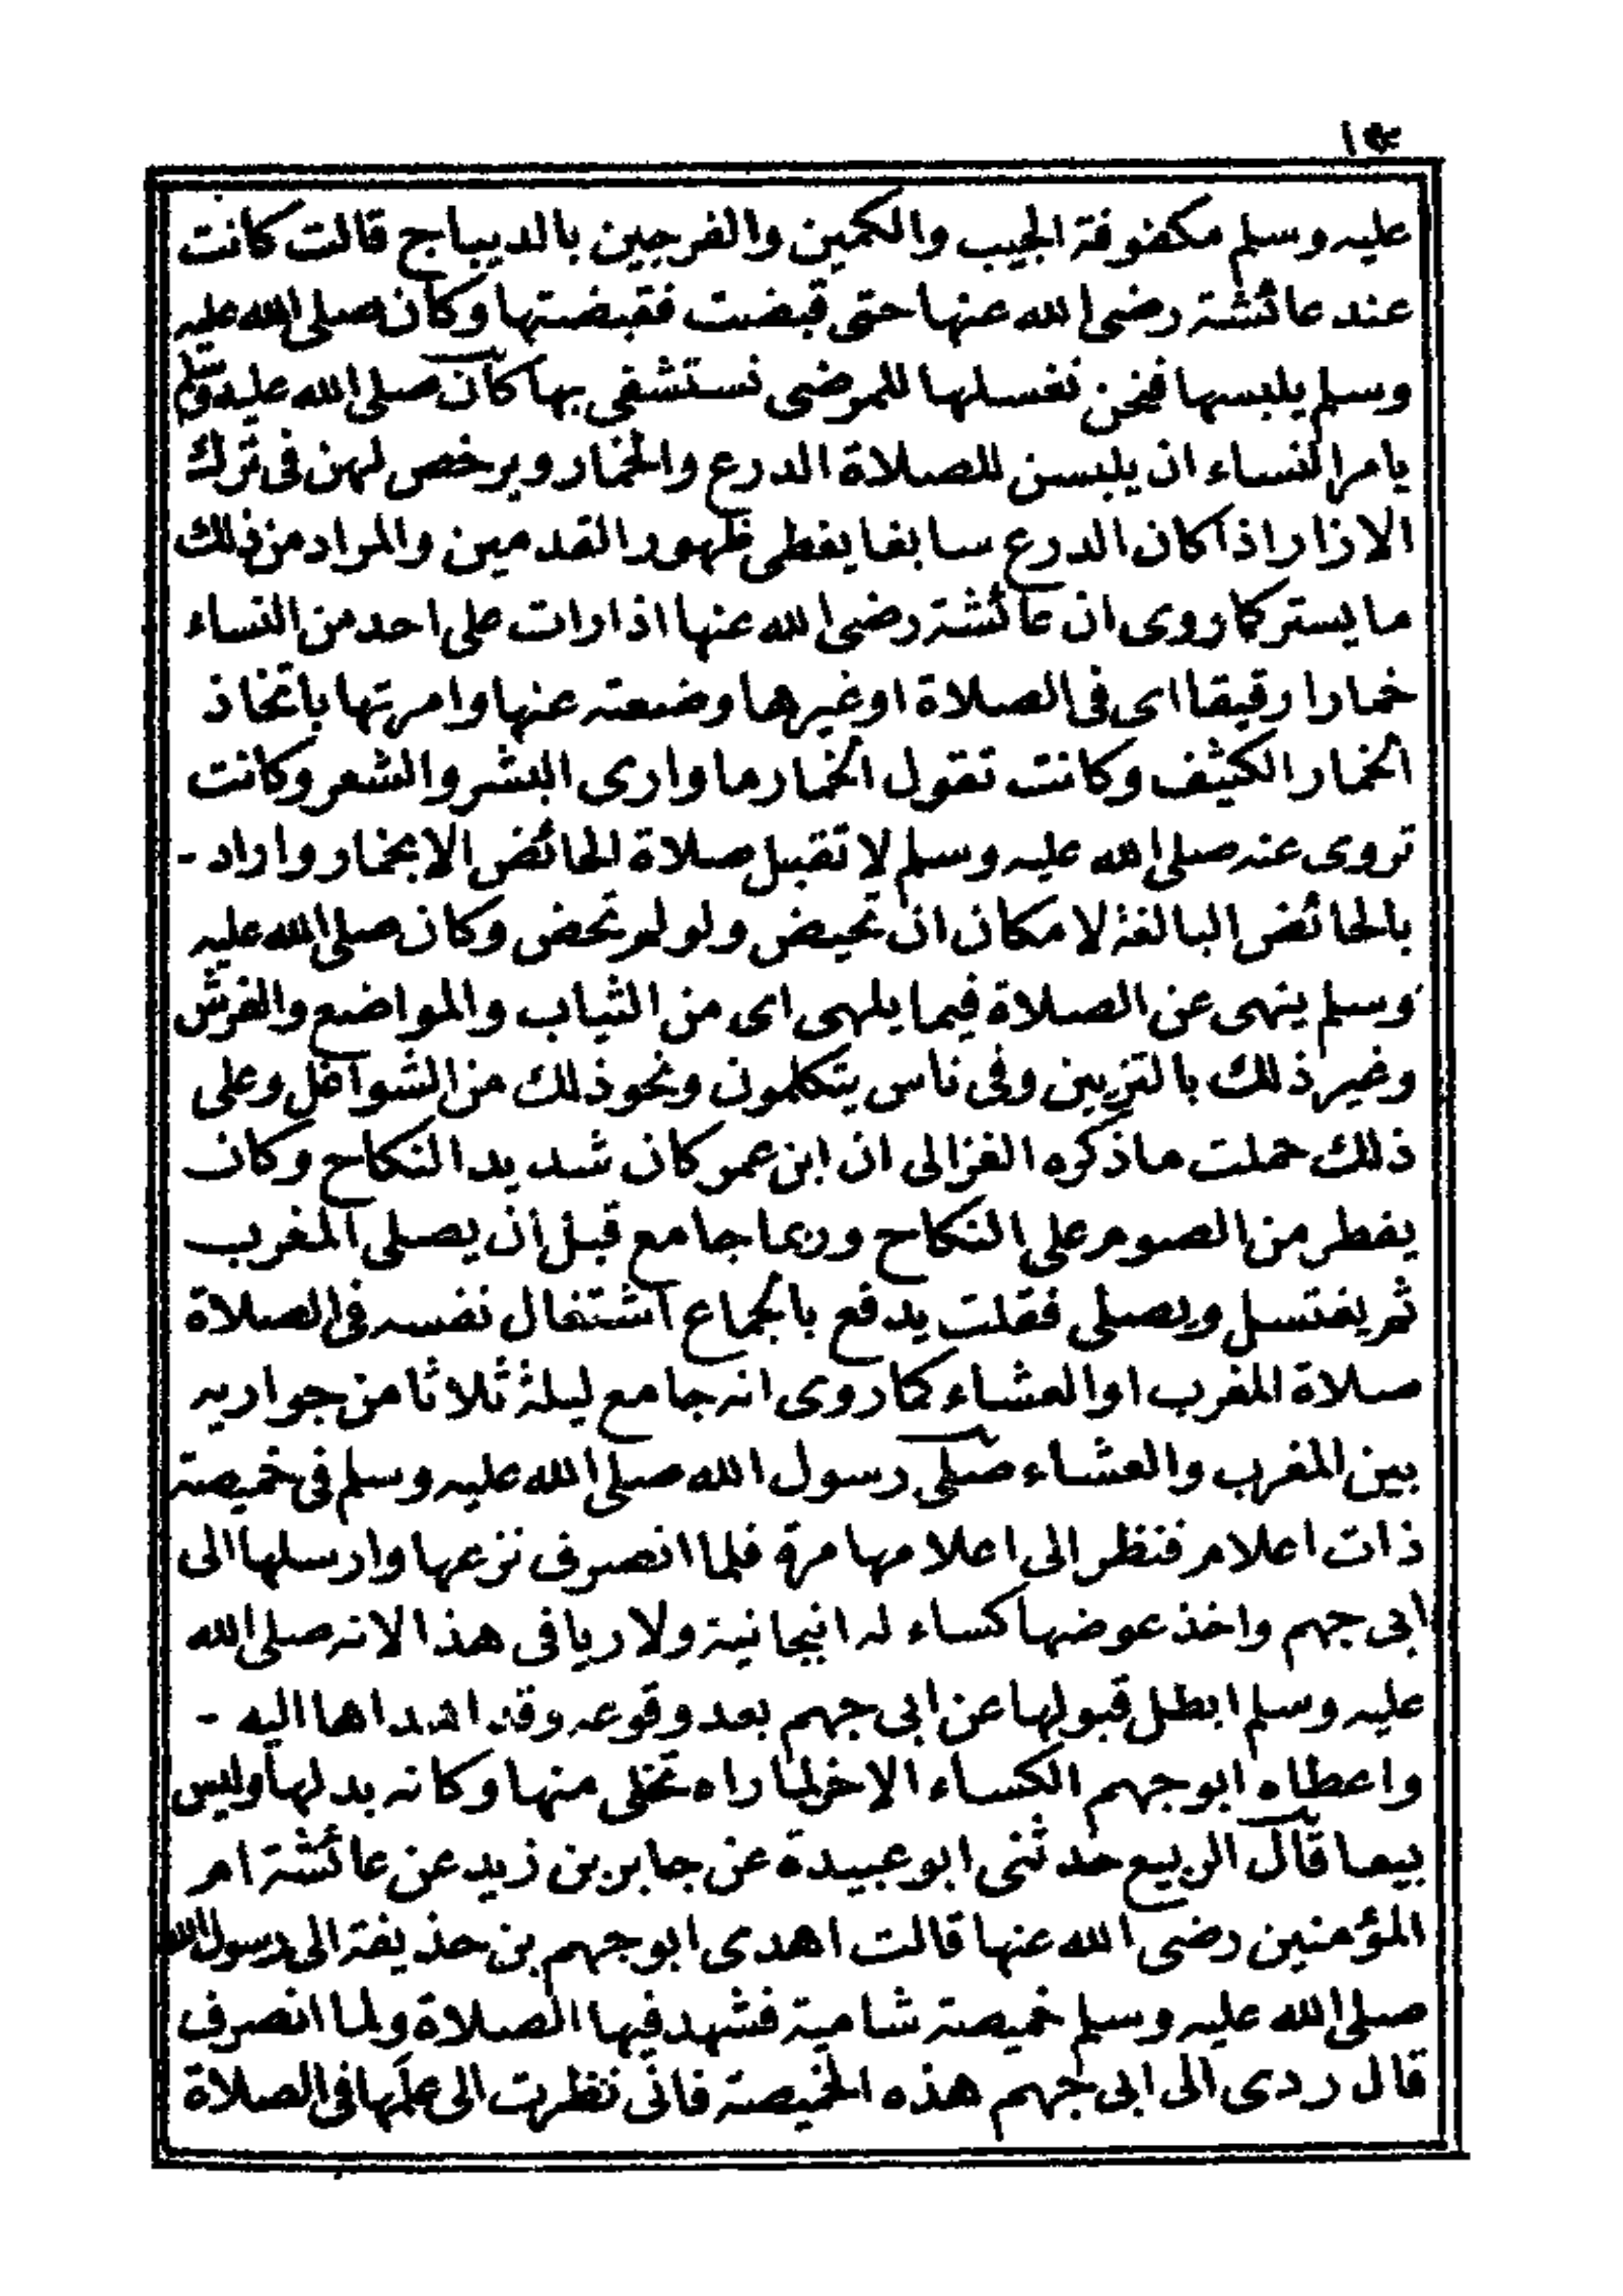 عليه وسلم مكفوفة الجيب والكمين والفرجين بالديباج قالت كانت
عند عائشة رضى الله عنها حتى قبضت فقبضتها وكان صلى الله عليه
وسلم يلبسها فنحن نغسلها للمرضى نستشفى بها كان صلى الله عليه وسلم
يامر النساء ان يلبسن للصلاة الدرع والخمار ويرخص لهن فى ترك
الازار اذا كان الدرع سابغا يغطى ظهور القدمين والمراد من ذلك
ما يستر كما روى ان عائشة رضى الله عنها اذا رات على احد من النساء
خمارا رقيقا اى فى الصلاة او غيرها وضعته عنها وامرتها باتخاذ
الخمار الكثيف وكانت تقول الخمار ما وارى البشر والشعر وكانت
تروى عنه صلى الله عليه وسلم لا تقبل صلاة الحائض الا بخمار واراد -
بالحائض البالغة لامكان ان تحيض ولو لم تحض وكان صلى الله عليه
وسلم ينهى عن الصلاة فيما يلهى اى من الثياب والمواضع والفرش
وغير ذلك بالتزيين وفى ناس يتكلمون ونحو ذلك من الشواغل وعلى
ذلك حملت ما ذكره الغزالى ان ابن عمر كان شديد النكاح وكان
يفطر من الصوم على النكاح وربما جامع قبل ان يصلى المغرب
ثم يغتسل ويصلى فقلت يدفع بالجماع اشتغال نفسه فى الصلاة
صلاة المغرب او العشاء كما روى انه جامع ليلة ثلاثا من جواريه
بين المغرب والعشاء صلى رسول الله صلى الله عليه وسلم فى خميصة
ذات اعلام فنظر الى اعلامها مرة فلما انصرف نزعها وارسلها الى
ابى جهم واخذ عوضها كساء له انبجانية ولا ربا فى هذا لانه صلى الله
عليه وسلم ابطل قبولها عن ابى جهم بعد وقوعه وقد اهداها اليه -
واعطاه ابو جهم الكساء الاخر لما راه تخلى منها وكانه بدلها وليس
بيعا قال الربيع حدثنى ابو عبيدة عن جابر بن زيد عن عائشة ام
المؤمنين رضى الله عنها قالت اهدى ابو جهم بن حذيفة الى رسول الله
صلى الله عليه وسلم خميصة شامية فشهد فيها الصلاة ولما انصرف
قال ردى الى ابى جهم هذه الخميصة فانى نظرت الى علمها فى الصلاة